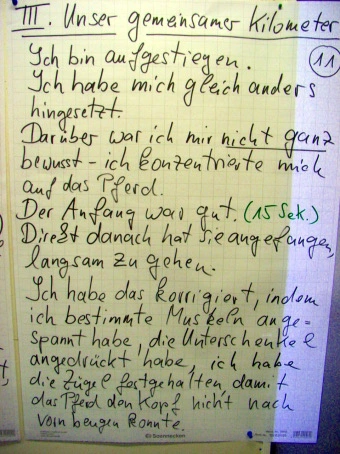 III. Unser gemeinsamer Kilometer
11
Ich bin aufgestiegen.
Ich habe mich gleich anders
hingesetzt.
Darüber war ich mir nicht ganz
bewusst - ich konzentrierte mich
auf das Pferd.
Der Anfang war gut. (15 Sek.)
Direkt danach hat sie angefangen,
langsam zu gehen.
Ich habe das korrigiert, indem
ich bestimmte Muskeln ange-
spannt habe, die Unterschenkel
angedrückt habe, ich habe
die Zügel festgehalten, damit
das Pferd den Kopf nicht nach
vorn beugen konnte.